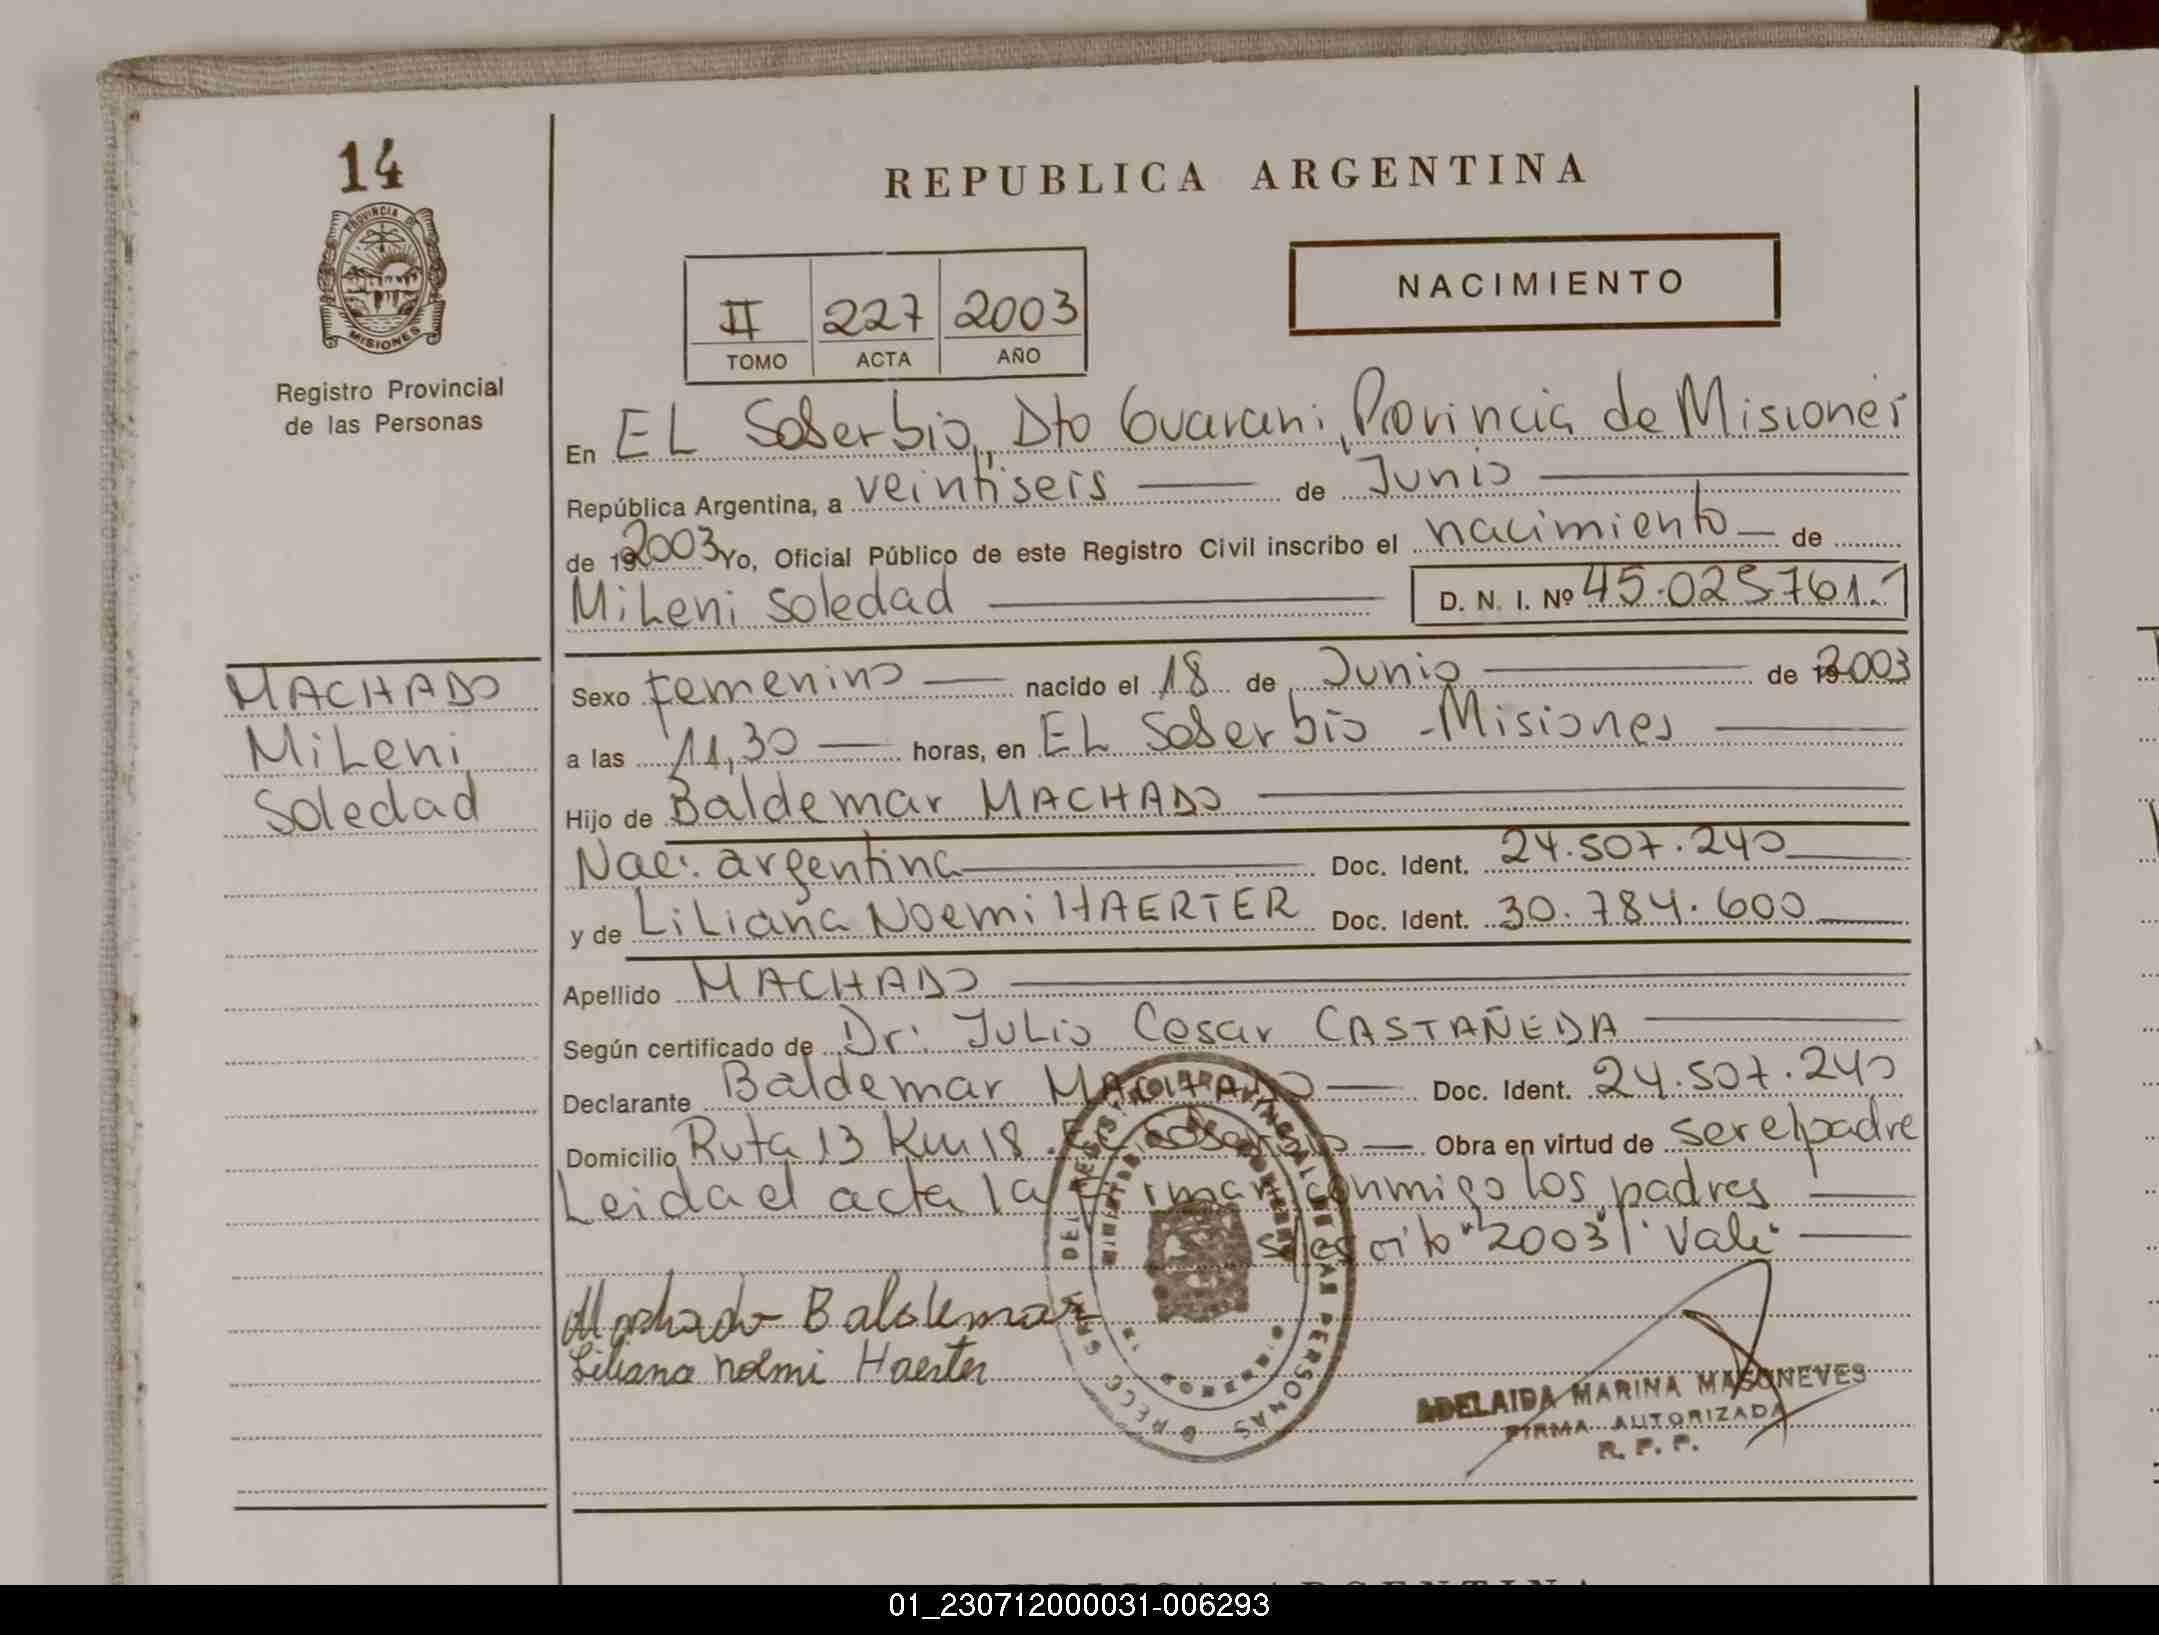 14
PROVINCIA DE
MISIONES
Registro Provincial
de las Personas
REPUBLICA ARGENTINA
II 227 2003
TOMO ACTA AÑO
NACIMIENTO
En EL Soberbio, Dto Guarani, Provincia de Misiones
República Argentina, a veintiseis de Junio
de 19 2003 Yo, Oficial Público de este Registro Civil inscribo el nacimiento de
MiLeni Soledad D. N. I. Nº 45.025.761.
MACHADO
MiLeni
Soledad
Sexo femenino nacido el 18 de Junio de 2003
a las 11,30 horas, en EL Soberbio - Misiones
Hijo de Baldemar MACHADO
Nac: argentina Doc. Ident. 24.507.240
y de LiLiana Noemi HAERTER Doc. Ident. 30.784.600
Apellido MACHADO
Según certificado de Dr: JuLio Cesar CASTAÑEDA
Declarante Baldemar MACHADO Doc. Ident. 24.507.240
Domicilio Ruta 13 Km 18. EL Soberbio Obra en virtud de ser el padre
Leida el acta la firman conmigo los padres
s/escrito "2003" Vale
Machado Baldemar
Liliana noemi Haerter
ADELAIDA MARINA MASONEVES
FIRMA AUTORIZADA
R. P. P.
01_230712000031-006293